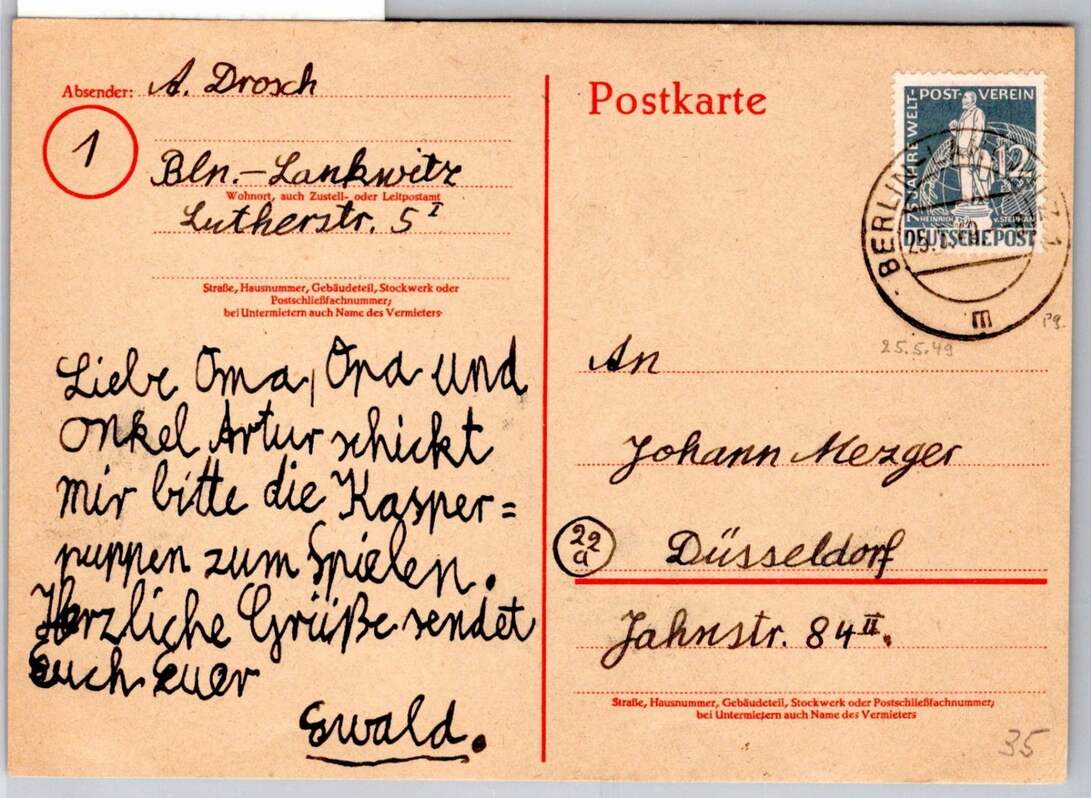 Absender: A. Drosch
1
Bln.-Lankwitz
Wohnort, auch Zustell- oder Leitpostamt
Lutherstr. 5 I
Straße, Hausnummer, Gebäudeteil, Stockwerk oder
Postschließfachnummer;
bei Untermietern auch Name des Vermieters
Liebe Oma, Opa und
Onkel Artur schickt
mir bitte die Kasper=
puppen zum Spielen.
Herzliche Grüße sendet
Euch Euer
Ewald.
Postkarte
75 JAHRE WELT-POST-VEREIN
12
HEINRICH v. STEPHAN
DEUTSCHE POST
BERLIN
1
m
25.5.49
Pg.
An
Johann Mezger
22
a
Düsseldorf
Jahnstr. 84 II.
Straße, Hausnummer, Gebäudeteil, Stockwerk oder Postschließfachnummer;
bei Untermietern auch Name des Vermieters
35